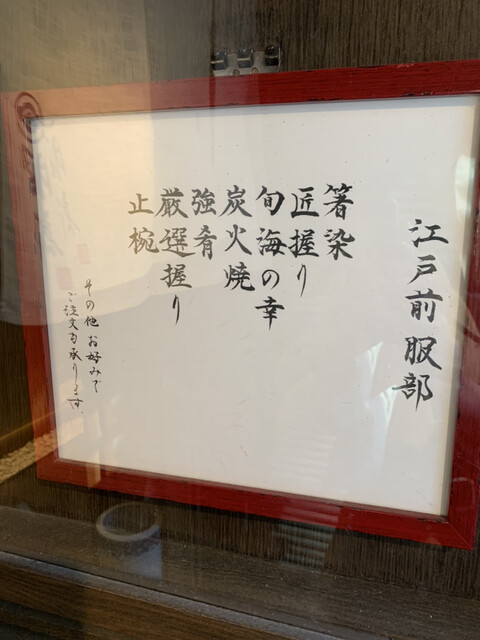 江戸前 服部
箸染
匠握り
旬海の幸
炭火焼
強肴
厳選握り
止椀
その他 お好みで
ご注文も承ります。